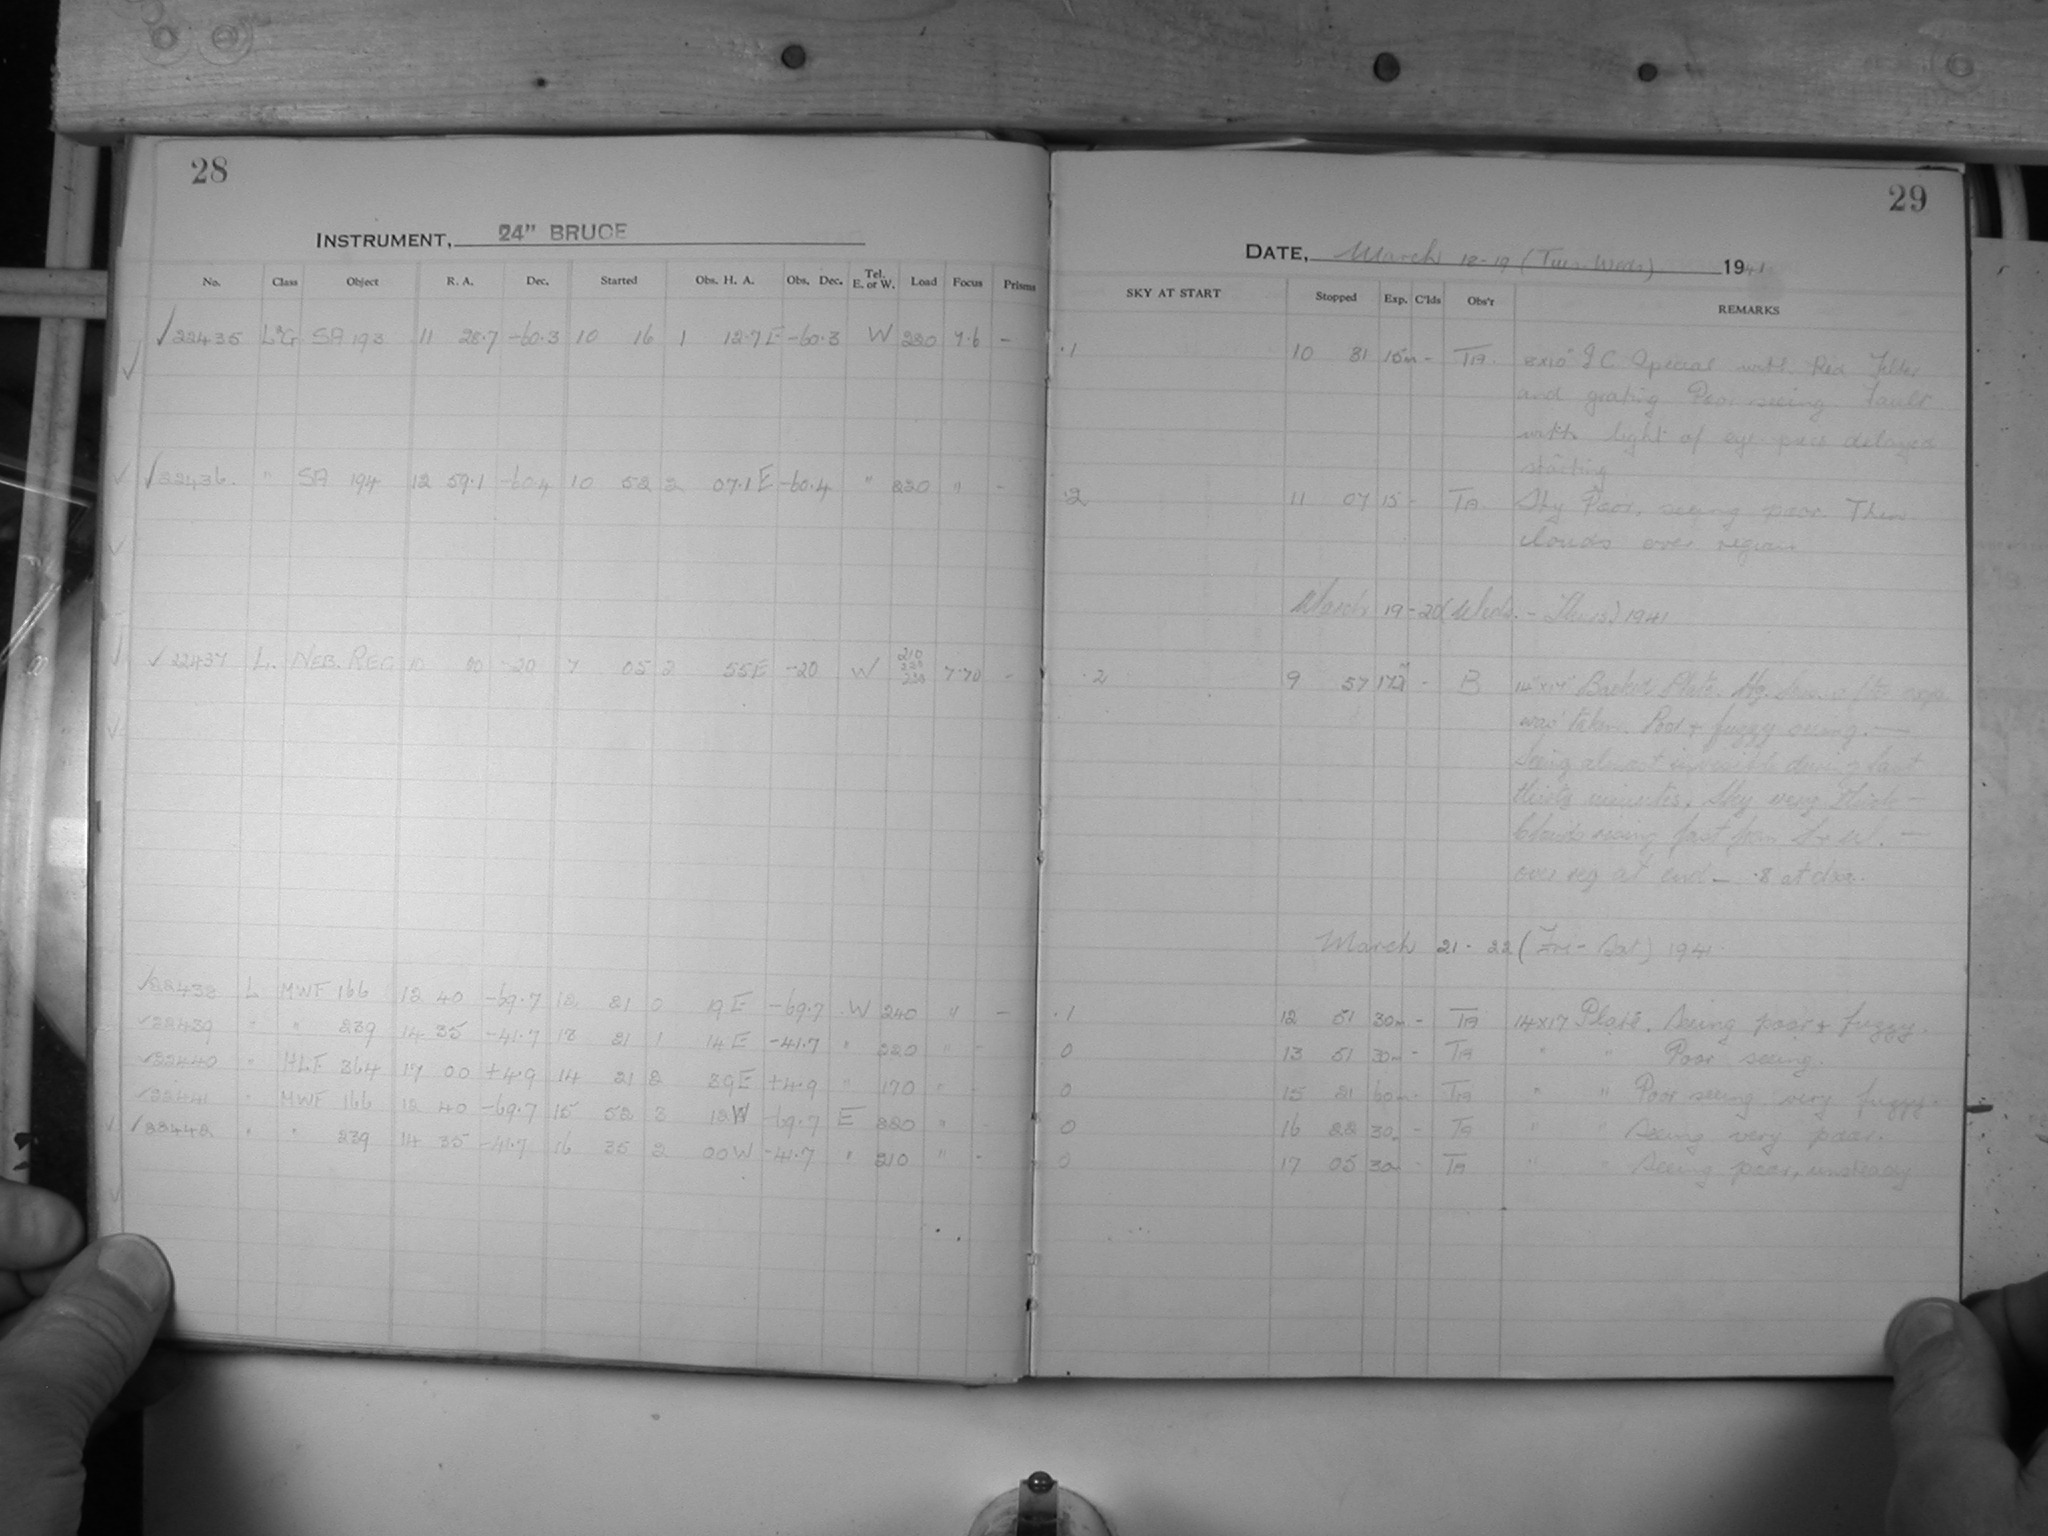 28
INSTRUMENT, 24" BRUCE
No. Class Object R. A. Dec. Started Obs. H. A. Obs. Dec. Tel. E. or W. Load Focus Prisms
✓22435 SA 193 11 28.7 -60.3 10 16 1 12.7 E -60.3 W 230 7.6 -
✓22436 " SA 194 12 59.1 -60.4 10 52 2 07.1 E -60.4 " 220 " -
✓22437 L. NEB. REG 10 00 -20 7 05 2 55 E -20 W 210 230 7.70 -
✓22438 L MWF 166 12 40 -69.7 12 21 0 19 E -69.7 W 240 " -
✓22439 " " 239 14 35 -41.7 13 21 1 14 E -41.7 " 220 " -
✓22440 " HLF 364 17 00 +4.9 14 21 2 39 E +4.9 " 170 " -
✓22441 " MWF 166 12 40 -69.7 15 52 3 12 W -69.7 E 220 " -
✓22442 " " 239 14 35 -41.7 16 35 2 00 W -41.7 " 210 " -
29
DATE, March 18-19 (Tues-Weds) 1941
SKY AT START Stopped Exp. C'lds Obs'r REMARKS
.1 10 31 15m - TA. 8x10" Special with Red Filter
and grating Poor seeing Fault
with light of eye piece delayed
starting
.2 11 07 15 - TA. Sky Poor, seeing poor. Thin
clouds over region
March 19-20 (Weds. - Thurs) 1941
.2 9 57 172 - B 14"x17" Plate.
was taken. Poor & fuzzy seeing. —
Seeing almost during last
thirty minutes. Sky very thick —
Clouds rising fast from —
over reg at end — .8 at
March 21-22 (Fri - Sat) 1941
.1 12 51 30m - TA 14x17 Plate. Seeing poor & fuzzy.
0 13 51 30m - TA " " Poor seeing.
0 15 21 60m - TA " " Poor seeing very fuzzy.
0 16 22 30m - TA " " Seeing very poor.
0 17 05 30m - TA " " Seeing poor, unsteady